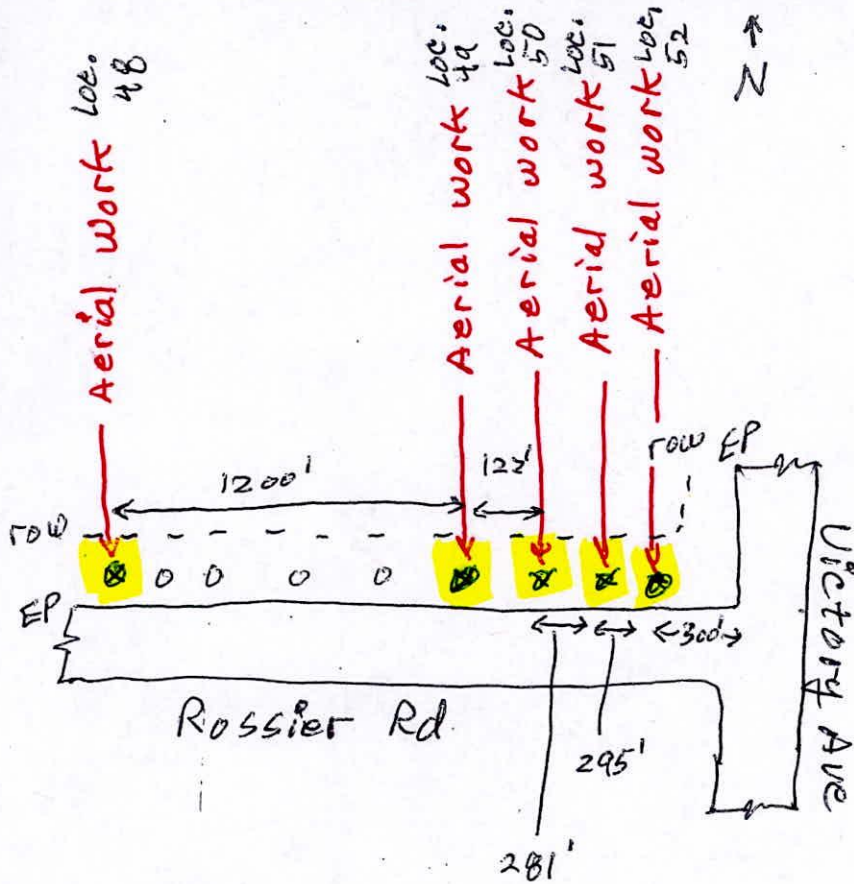 Aerial Work Loc. 48
Aerial Work Loc. 49
Aerial work Loc. 50
Aerial work Loc. 51
Aerial work Loc. 52
N
1200'
122'
row
EP
row
EP
300'
Rossier Rd
295'
281'
Victory Ave